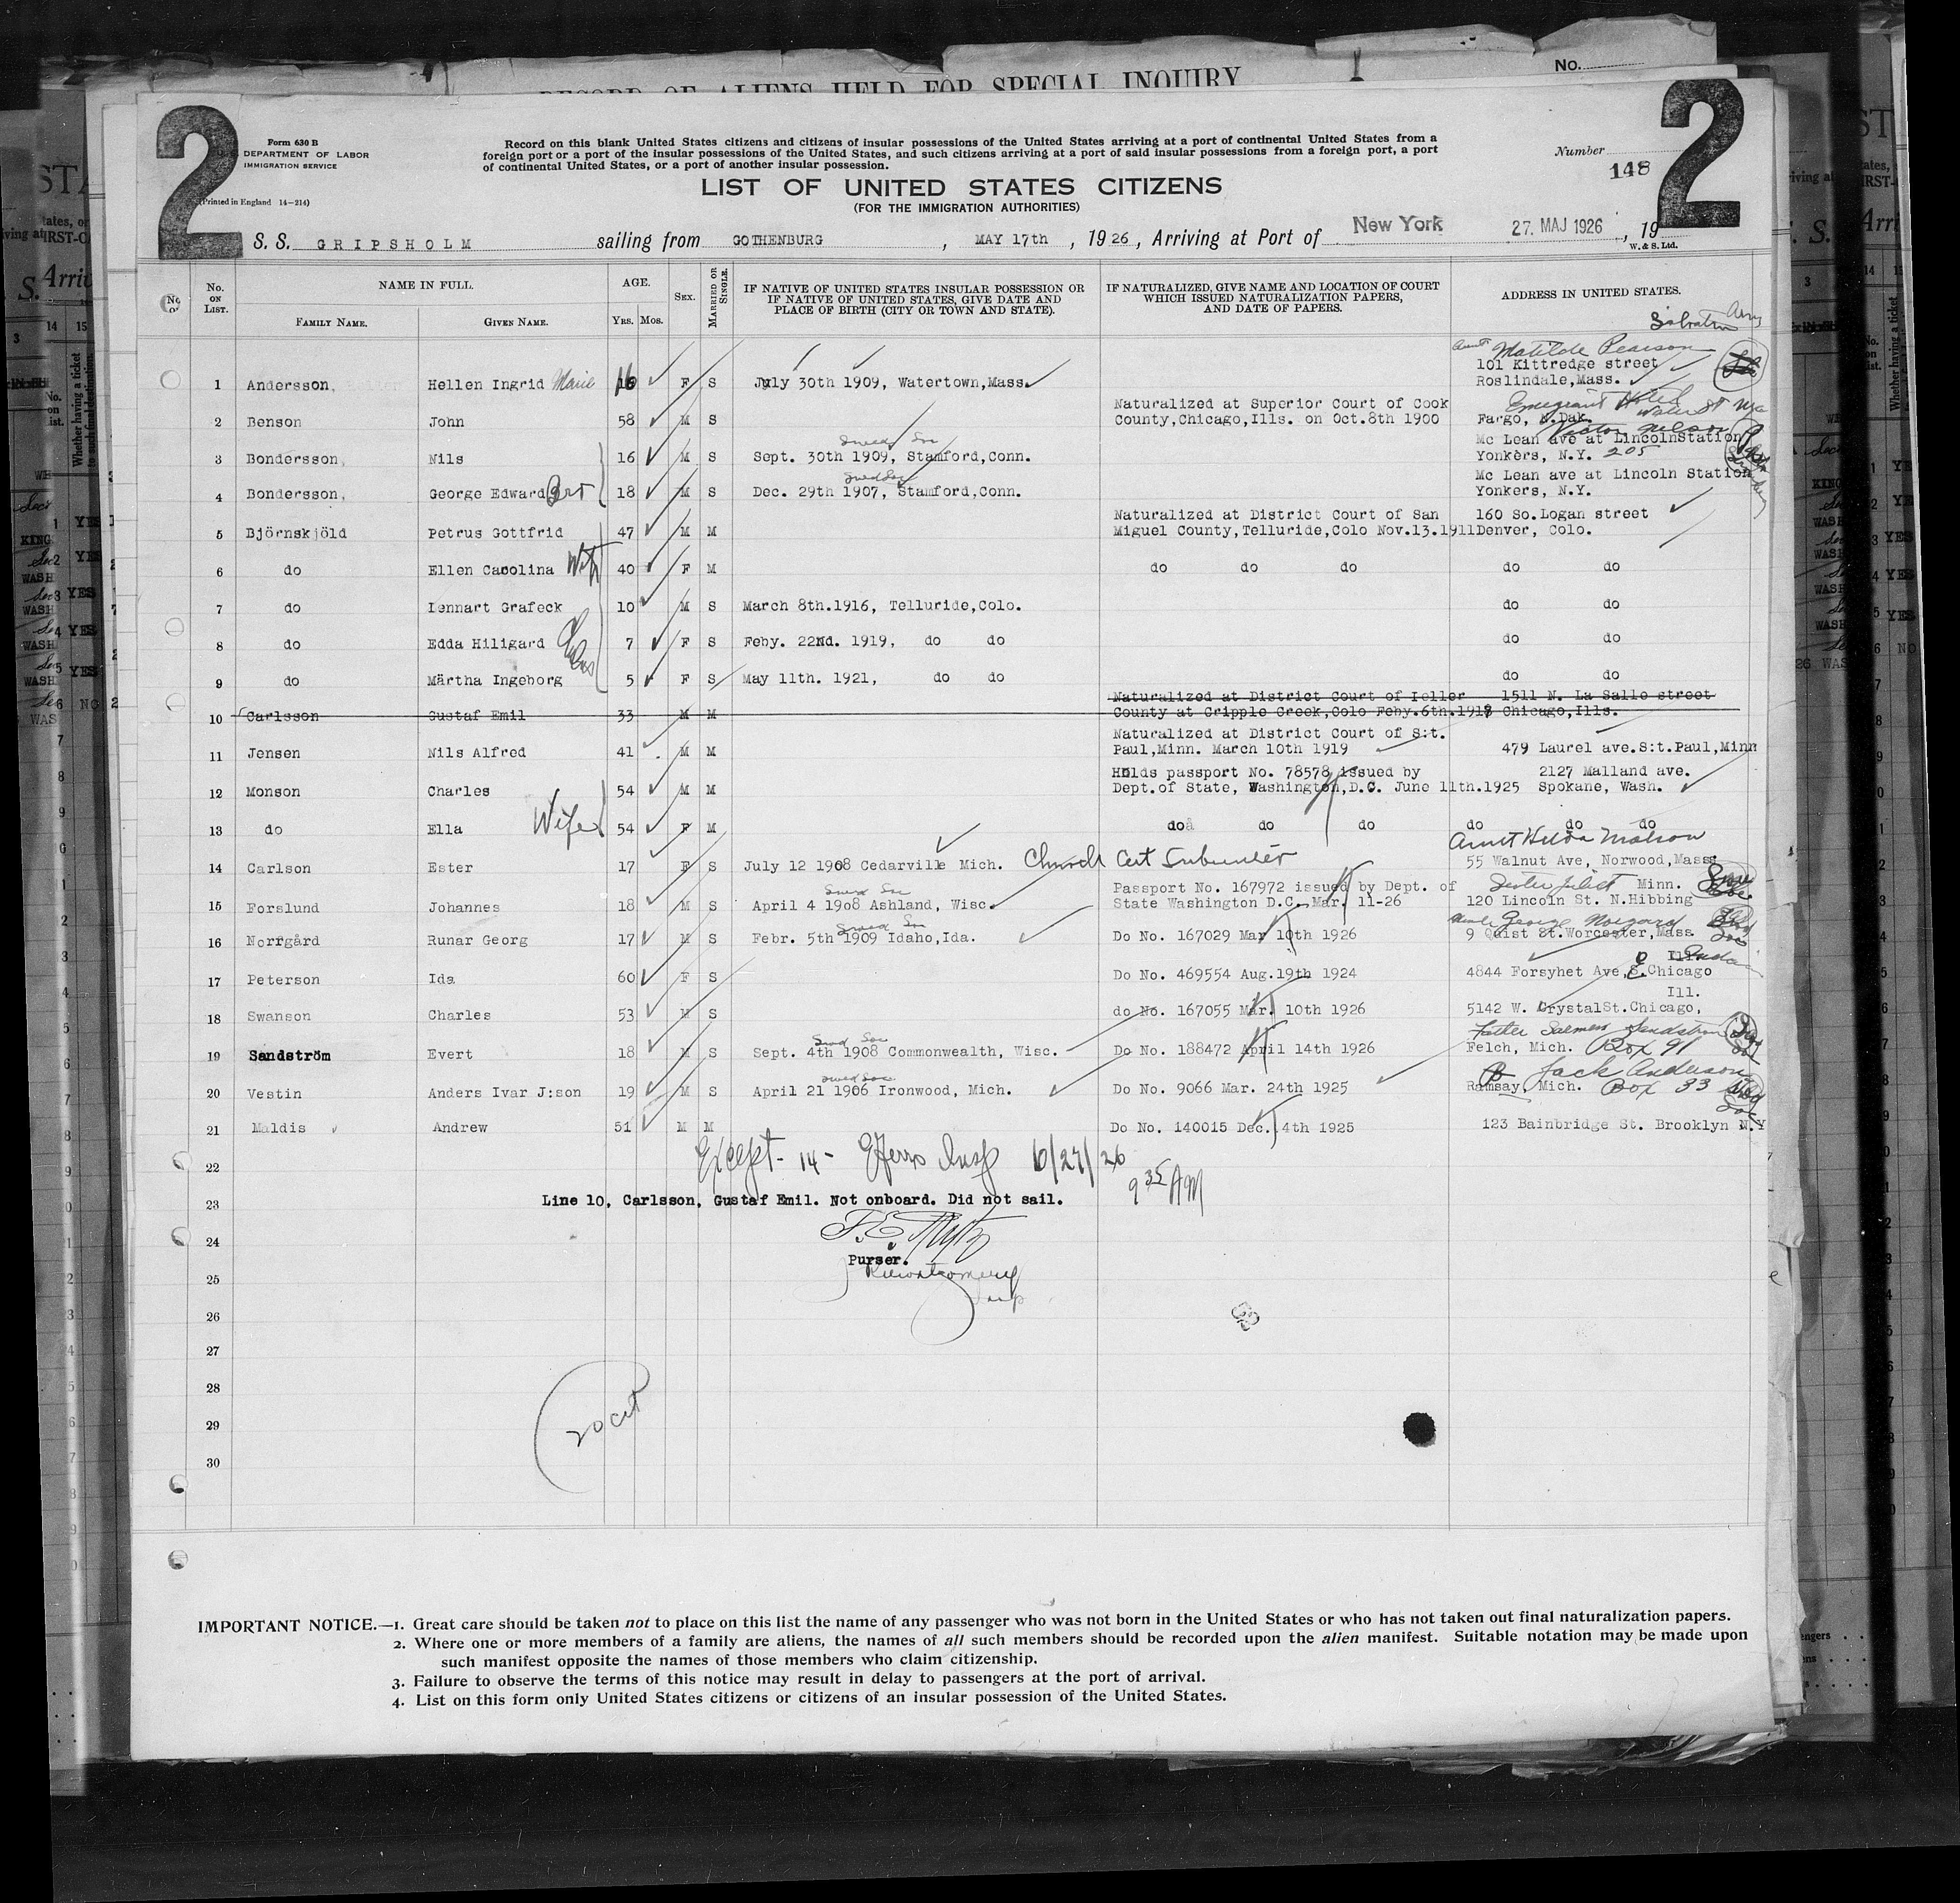 RECORD OF ALIENS HELD FOR SPECIAL INQUIRY
No.
2
2
Form 630 B
DEPARTMENT OF LABOR
IMMIGRATION SERVICE
(Printed in England 14-214)
Record on this blank United States citizens and citizens of insular possessions of the United States arriving at a port of continental United States from a
foreign port or a port of the insular possessions of the United States, and such citizens arriving at a port of said insular possessions from a foreign port, a port
of continental United States, or a port of another insular possession.
Number
148
LIST OF UNITED STATES CITIZENS
(FOR THE IMMIGRATION AUTHORITIES)
S. S. GRIPSHOLM sailing from GOTHENBURG, MAY 17th, 1926, Arriving at Port of New York 27. MAJ 1926, 19
W. & S. Ltd.
No. ON LIST. NAME IN FULL. AGE. SEX. MARRIED OR SINGLE. IF NATIVE OF UNITED STATES INSULAR POSSESSION OR IF NATIVE OF UNITED STATES, GIVE DATE AND PLACE OF BIRTH (CITY OR TOWN AND STATE). IF NATURALIZED, GIVE NAME AND LOCATION OF COURT WHICH ISSUED NATURALIZATION PAPERS, AND DATE OF PAPERS. ADDRESS IN UNITED STATES.
FAMILY NAME. GIVEN NAME. Yrs. Mos.
Aunt Matilda Pearson
101 Kittredge street
1 Andersson, Hellen Ingrid Marie 16 F S July 30th 1909, Watertown,Mass. Roslindale,Mass.
Naturalized at Superior Court of Cook Emegrant Hotel
2 Benson John 58 M S County,Chicago,Ills. on Oct.8th 1900 Fargo, N.Dak.
Victor Nelson
Mc Lean ave at LincolnStation
3 Bondersson, Nils 16 M S Sept. 30th 1909, Stamford,Conn. Yonkers, N.Y. 205
Mc Lean ave at Lincoln Station
4 Bondersson, George Edward 18 M S Dec. 29th 1907, Stamford,Conn. Yonkers, N.Y.
Naturalized at District Court of San 160 So.Logan street
5 Björnskjöld Petrus Gottfrid 47 M M Miguel County,Telluride,Colo Nov.13.1911 Denver, Colo.
6 do Ellen Carolina Wife 40 F M do do do do do
7 do Lennart Grafeck 10 M S March 8th.1916, Telluride,Colo. do do
8 do Edda Hiligard 7 F S Feby. 22nd. 1919, do do do do
9 do Märtha Ingeborg 5 F S May 11th. 1921, do do do do
Naturalized at District Court of Ieller 1511 N. La Salle street
10 Carlsson Gustaf Emil 33 M M County at Cripple Creek,Colo Feby.6th.1918 Chicago,Ills.
Naturalized at District Court of S:t.
11 Jensen Nils Alfred 41 M M Paul,Minn. March 10th 1919 479 Laurel ave.S:t.Paul,Minn
Holds passport No. 78578 issued by 2127 Malland ave.
12 Monson Charles 54 M M Dept.of State, Washington,D.C. June 11th.1925 Spokane, Wash.
13 do Ella Wife 54 F M do do do do do do
Aunt Hilda Matson
14 Carlson Ester 17 F S July 12 1908 Cedarville Mich. Church Cert 55 Walnut Ave, Norwood,Mass.
Passport No. 167972 issued by Dept. of Minn.
15 Forslund Johannes 18 M S April 4 1908 Ashland, Wisc. State Washington D.C. Mar. 11-26 120 Lincoln St. N.Hibbing
16 Norrgård Runar Georg 17 M S Febr. 5th 1909 Idaho,Ida. Do No. 167029 Mar 10th 1926 9 Quist St.Worcester,Mass.
17 Peterson Ida 60 F S Do No. 469554 Aug.19th 1924 4844 Forsyhet Ave, Chicago
Ill.
18 Swanson Charles 53 M S do No. 167055 Mar. 10th 1926 5142 W. CrystalSt.Chicago,
19 Sandström Evert 18 M S Sept. 4th 1908 Commonwealth, Wisc. Do No. 188472 April 14th 1926 Felch, Mich. Box 91
Jack Anderson
20 Vestin Anders Ivar J:son 19 M S April 21 1906 Ironwood, Mich. Do No. 9066 Mar. 24th 1925 Ramsay, Mich. Box 33
21 Maldis Andrew 51 M M Do No. 140015 Dec. 4th 1925 123 Bainbridge St. Brooklyn N.Y
22 Except - 14 - Insp
9 35 AM
23 Line 10, Carlsson, Gustaf Emil. Not onboard. Did not sail.
24
Purser.
25
26
27
28
29
30
IMPORTANT NOTICE.—1. Great care should be taken not to place on this list the name of any passenger who was not born in the United States or who has not taken out final naturalization papers.
2. Where one or more members of a family are aliens, the names of all such members should be recorded upon the alien manifest. Suitable notation may be made upon
such manifest opposite the names of those members who claim citizenship.
3. Failure to observe the terms of this notice may result in delay to passengers at the port of arrival.
4. List on this form only United States citizens or citizens of an insular possession of the United States.